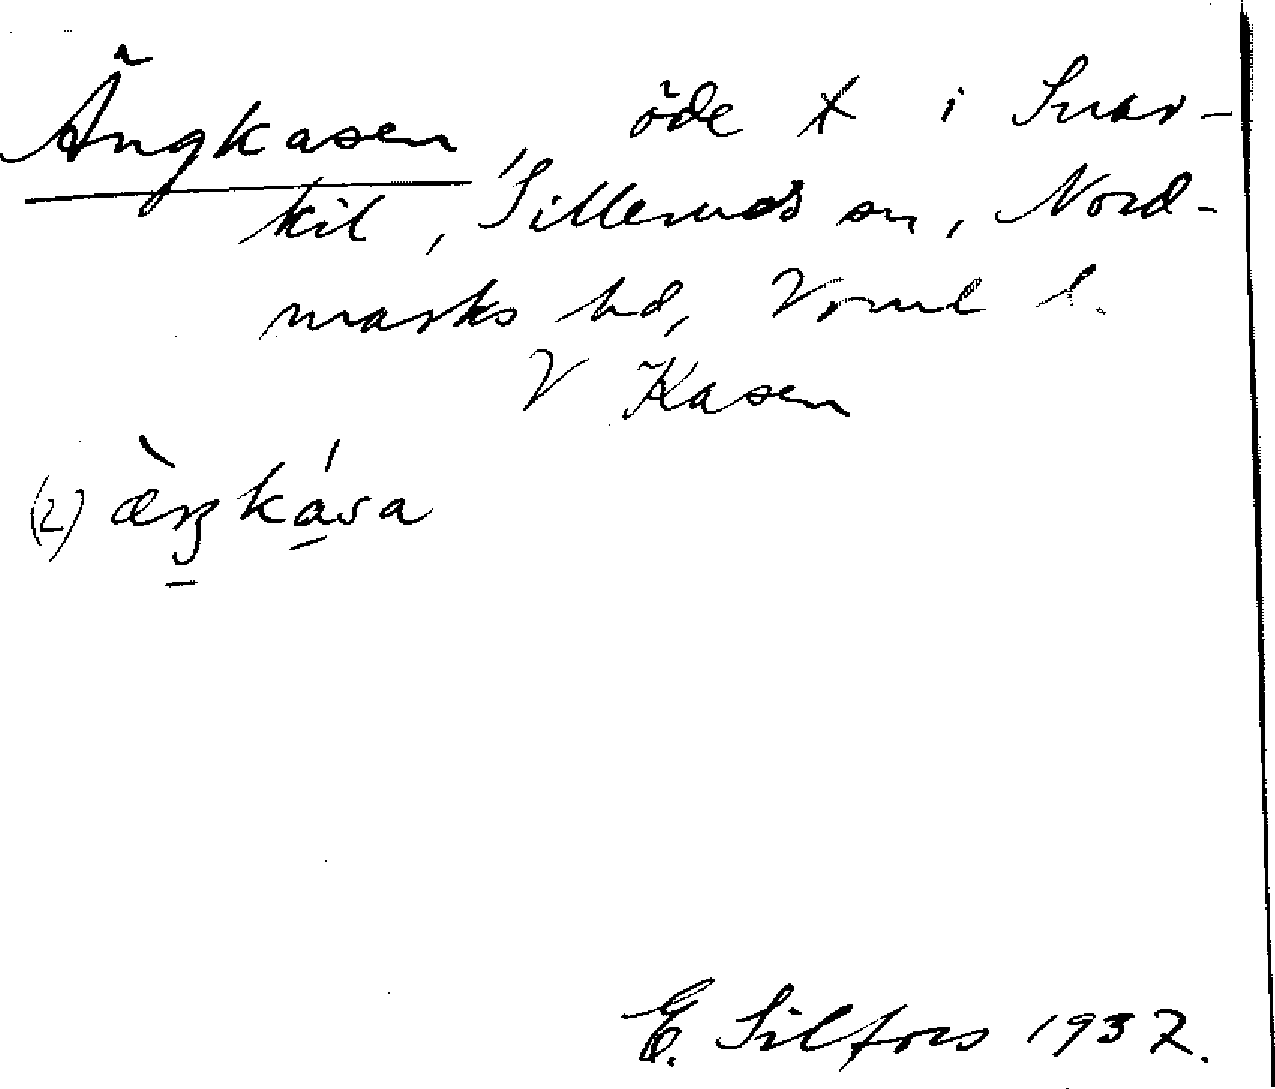 Ängkasen, öde t i Snar-
kil, Silleruds sn, Nord-
marks hd, Vrml l.
V Kasen
(2) æ̀ŋkása
E. Silfors 1937.